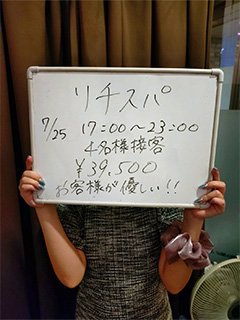 リチスパ
7/25 17:00〜23:00
4名様接客
¥39,500
お客様が優しい!!